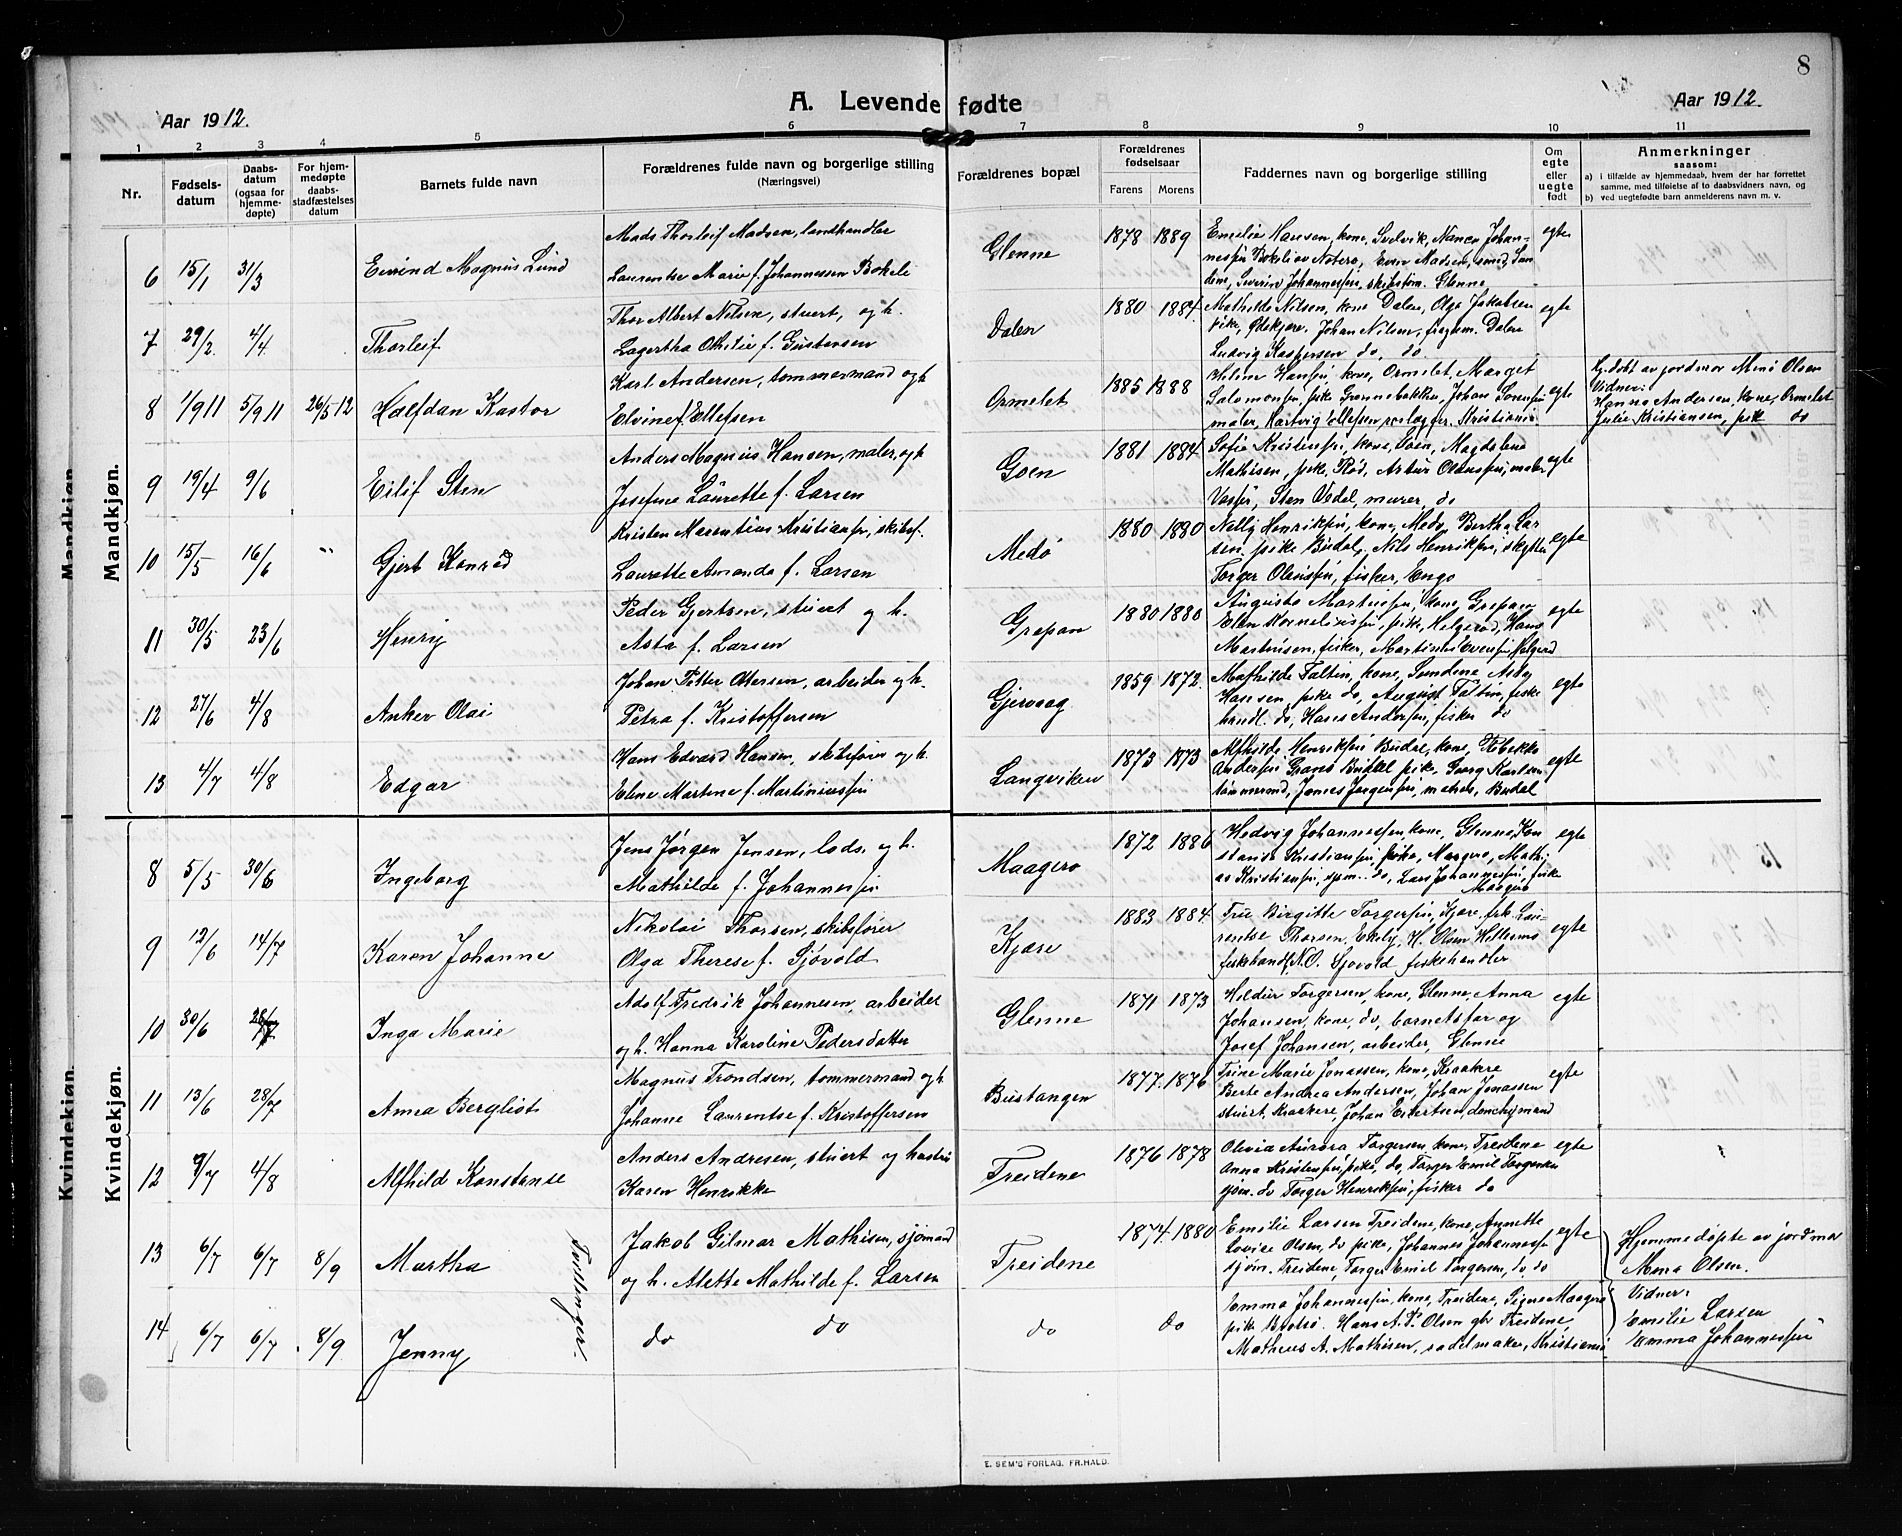 8
A. Levende fødte
Aar 1912.
Aar 1912.
1 2 3 4 5 6 7 8 9 10 11
Nr.
Fødsels-
datum
Daabs-
datum
(ogsaa for
hjemme-
døpte)
For hjem-
medøpte
daabs-
stadfæstelses
datum
Barnets fulde navn
Forældrenes fulde navn og borgerlige stilling
(Næringsvei)
Forældrenes bopæl
Forældrenes
fødselsaar
Farens Morens
Faddernes navn og borgerlige stilling
Om
egte
eller
uegte
født
Anmerkninger
saasom:
a) i tilfælde av hjemmedaab, hvem der har forrettet
samme, med tilføielse af to daabsvidners navn, og
b) ved uegtefødte barn anmelderens navn m. v.
Mandkjøn.
Mandkjøn.
6 15/1 31/3 Eivind Magnus Lund
Mads Thorleif Madsen, landhandler
Laurentse Marie f. Johannessen Bokeli
Glenne 1878 1889
Emilie Hansen, kone, Svelvik, Nanca Johan-
egte
7 29/2. 4/4. Thorleif
Thor Albert Nilsen, stuert, og h.
Lagertha Othilie f. Gustavsen
Dalen 1880 1884.
Mathilde Nilsen, kone Dalen, Olga Jakobsen
pike, Johan Nilsen, Dalen
Ludvig Kaspersen do, do
egte
8 1/9 11 5/9 11 26/5 12 Halfdan Kastor
Karl Andersen, tømmermand og h
Elvine f. Ellefsen
Ormelet 1885 1888
kone, Ormelet, Marget
Salomonsen, pike Grønnebakken, Johan
maler, Hartvig Ellefsen, Kristiania
egte
Hj.døbt av jordmor Mina Olsen
Vidner:
Hanna Andersen, kone, Ormelet
Julie Kristiansen, pike do
9 19/4 9/6 Eilif Sten
Anders Magnus Hansen, maler, og h
Josefine Laurette f. Larsen
Goen 1881 1884
Sofie Kristensen, kone, Goen, Magdalena
Mathisen, pike, Rød, Artur Olaussen, maler
Sten Vedel, murer, do
egte
10 15/5 16/6 " Gjert Konrad
Kristen Marentius Kristiansen, skibsf.
Laurette Amanda f. Larsen
Medø 1880 1880
Nelly Henriksen, kone, Medø, Bertha Lar-
sen, pike Budal, Nils Henriksen,
Torger Olaussen, fisker, Engø
egte
11 30/5 23/6 Henry
Peder Gjertsen, stuert og h.
Asta f. Larsen
Grepan 1880 1880
Augusta Martinsen, kone, Grepan
Elen Kornelius­sen, pike, Helgerød, Hans
Martinsen, fisker, Martinius Evensen, Helgerød
egte
12 27/6 4/8 Anker Olai
Johan Petter Ottersen, arbeider og h.
Petra f. Kristoffersen
Gjervaag 1859 1872.
Mathilde Faltin, kone, Sundene, Asta
Hansen, pike do, August Faltin, fiske
handl. do, Hans Andersen, fisker do
egte
13 4/7 4/8 Edgar
Hans Edvard Hansen, skibsfører og h.
Elene Martine f. Martiniussen
Langviken 1873 1873
Alfhilde Henriksen Budal, kone, Rebekka
Andersen Grans Budal pike, Georg Karlsen
tømmermd, James Jørgensen, matros, Budal
egte
Kvindekjøn.
Kvindekjøn.
8 5/5 30/6 Ingeborg
Jens Jørgen Jensen, lods, og h.
Mathilde f. Johannessen
Maagerø 1872 1886
Hedvig Johannessen, kone, Glenne, Kon
stanse Kristiansen, pike, Maagerø, Mathi-
as Kristiansen, sjøm. do, Lars Johannessen, fisker
Maagerø
egte
9 12/6 14/7 Karen Johanne
Nikolai Thorsen, skibsfører
Olga Therese f. Sjøvold
Kjære 1883 1884.
Fru Birgitte Torgersen, Kjære, frk. Lau-
rentse Thorsen, Ekely, H. Olsen
fiskehandl. N.O. Sjøvold fiskehandler
egte
10 30/6 28/7 Inga Marie
Adolf Fredrik Johannesen, arbeider
og h. Hanna Karoline Pedersdatter
Glenne 1871 1873
Hildur Torgersen, kone, Glenne, Anna
Johansen, kone, do, barnets far og
Josef Johansen, arbeider, Glenne
egte
11 13/6 28/7 Anna Bergliot
Magnus Trondsen, tømmermand og h.
Johanne Laurentse f. Kristoffersen
Bustangen 1877. 1876
Trine Marie Jonassen, kone, Kraakere
Berte Andrea Andersen, Johan Jonassen
stuert, Kraakere, Johan Evertsen
egte
12 9/7 4/8 Alfhild Konstanse
Anders Andresen, stuert og hustru
Karen Henrikke
Treidene 1876 1878
Olivia Aurora Torgersen, kone, Treidene
Anna Kristensen, pike, do, Torger Emil Torgersen
sjøm. do Torger Henriksen, fisker do
egte
13 6/7 6/7 8/9 Martha
Tvillinger.
Jakob Gilmar Mathisen, sjømand
og h. Alette Mathilde f. Larsen
Treidene 1874. 1880
Emilie Larsen Treidene, kone, Annette
Lovise Olsen, do pike, Johannes Johannessen
sjøm. Treidene, Torger Emil Torgersen, do, do
egte
Hjemmedøpte av jordmor
Mena Olsen.
Vidner:
Emilie Larsen
Emma Johannessen
14 6/7 6/7 8/9 Jenny
do do
do do
Emma Johannessen, kone, Treidene, Signe Maagerø
pike Brøtsø. Hans A. P. Olsen gbr Treidene,
Matheus A. Mathisen, sadelmaker, Kristiania
E. SEM'S FORLAG, FR.HALD.